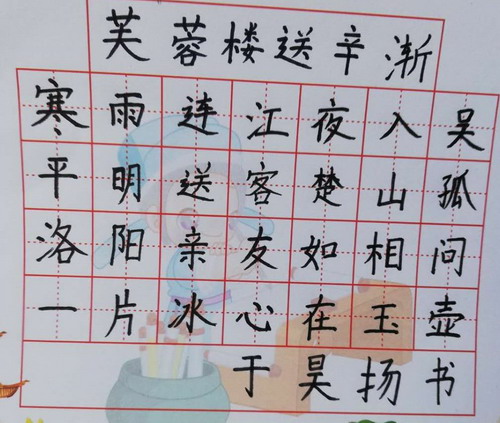 芙蓉楼送辛渐
寒雨连江夜入吴
平明送客楚山孤
洛阳亲友如相问
一片冰心在玉壶
于昊扬书